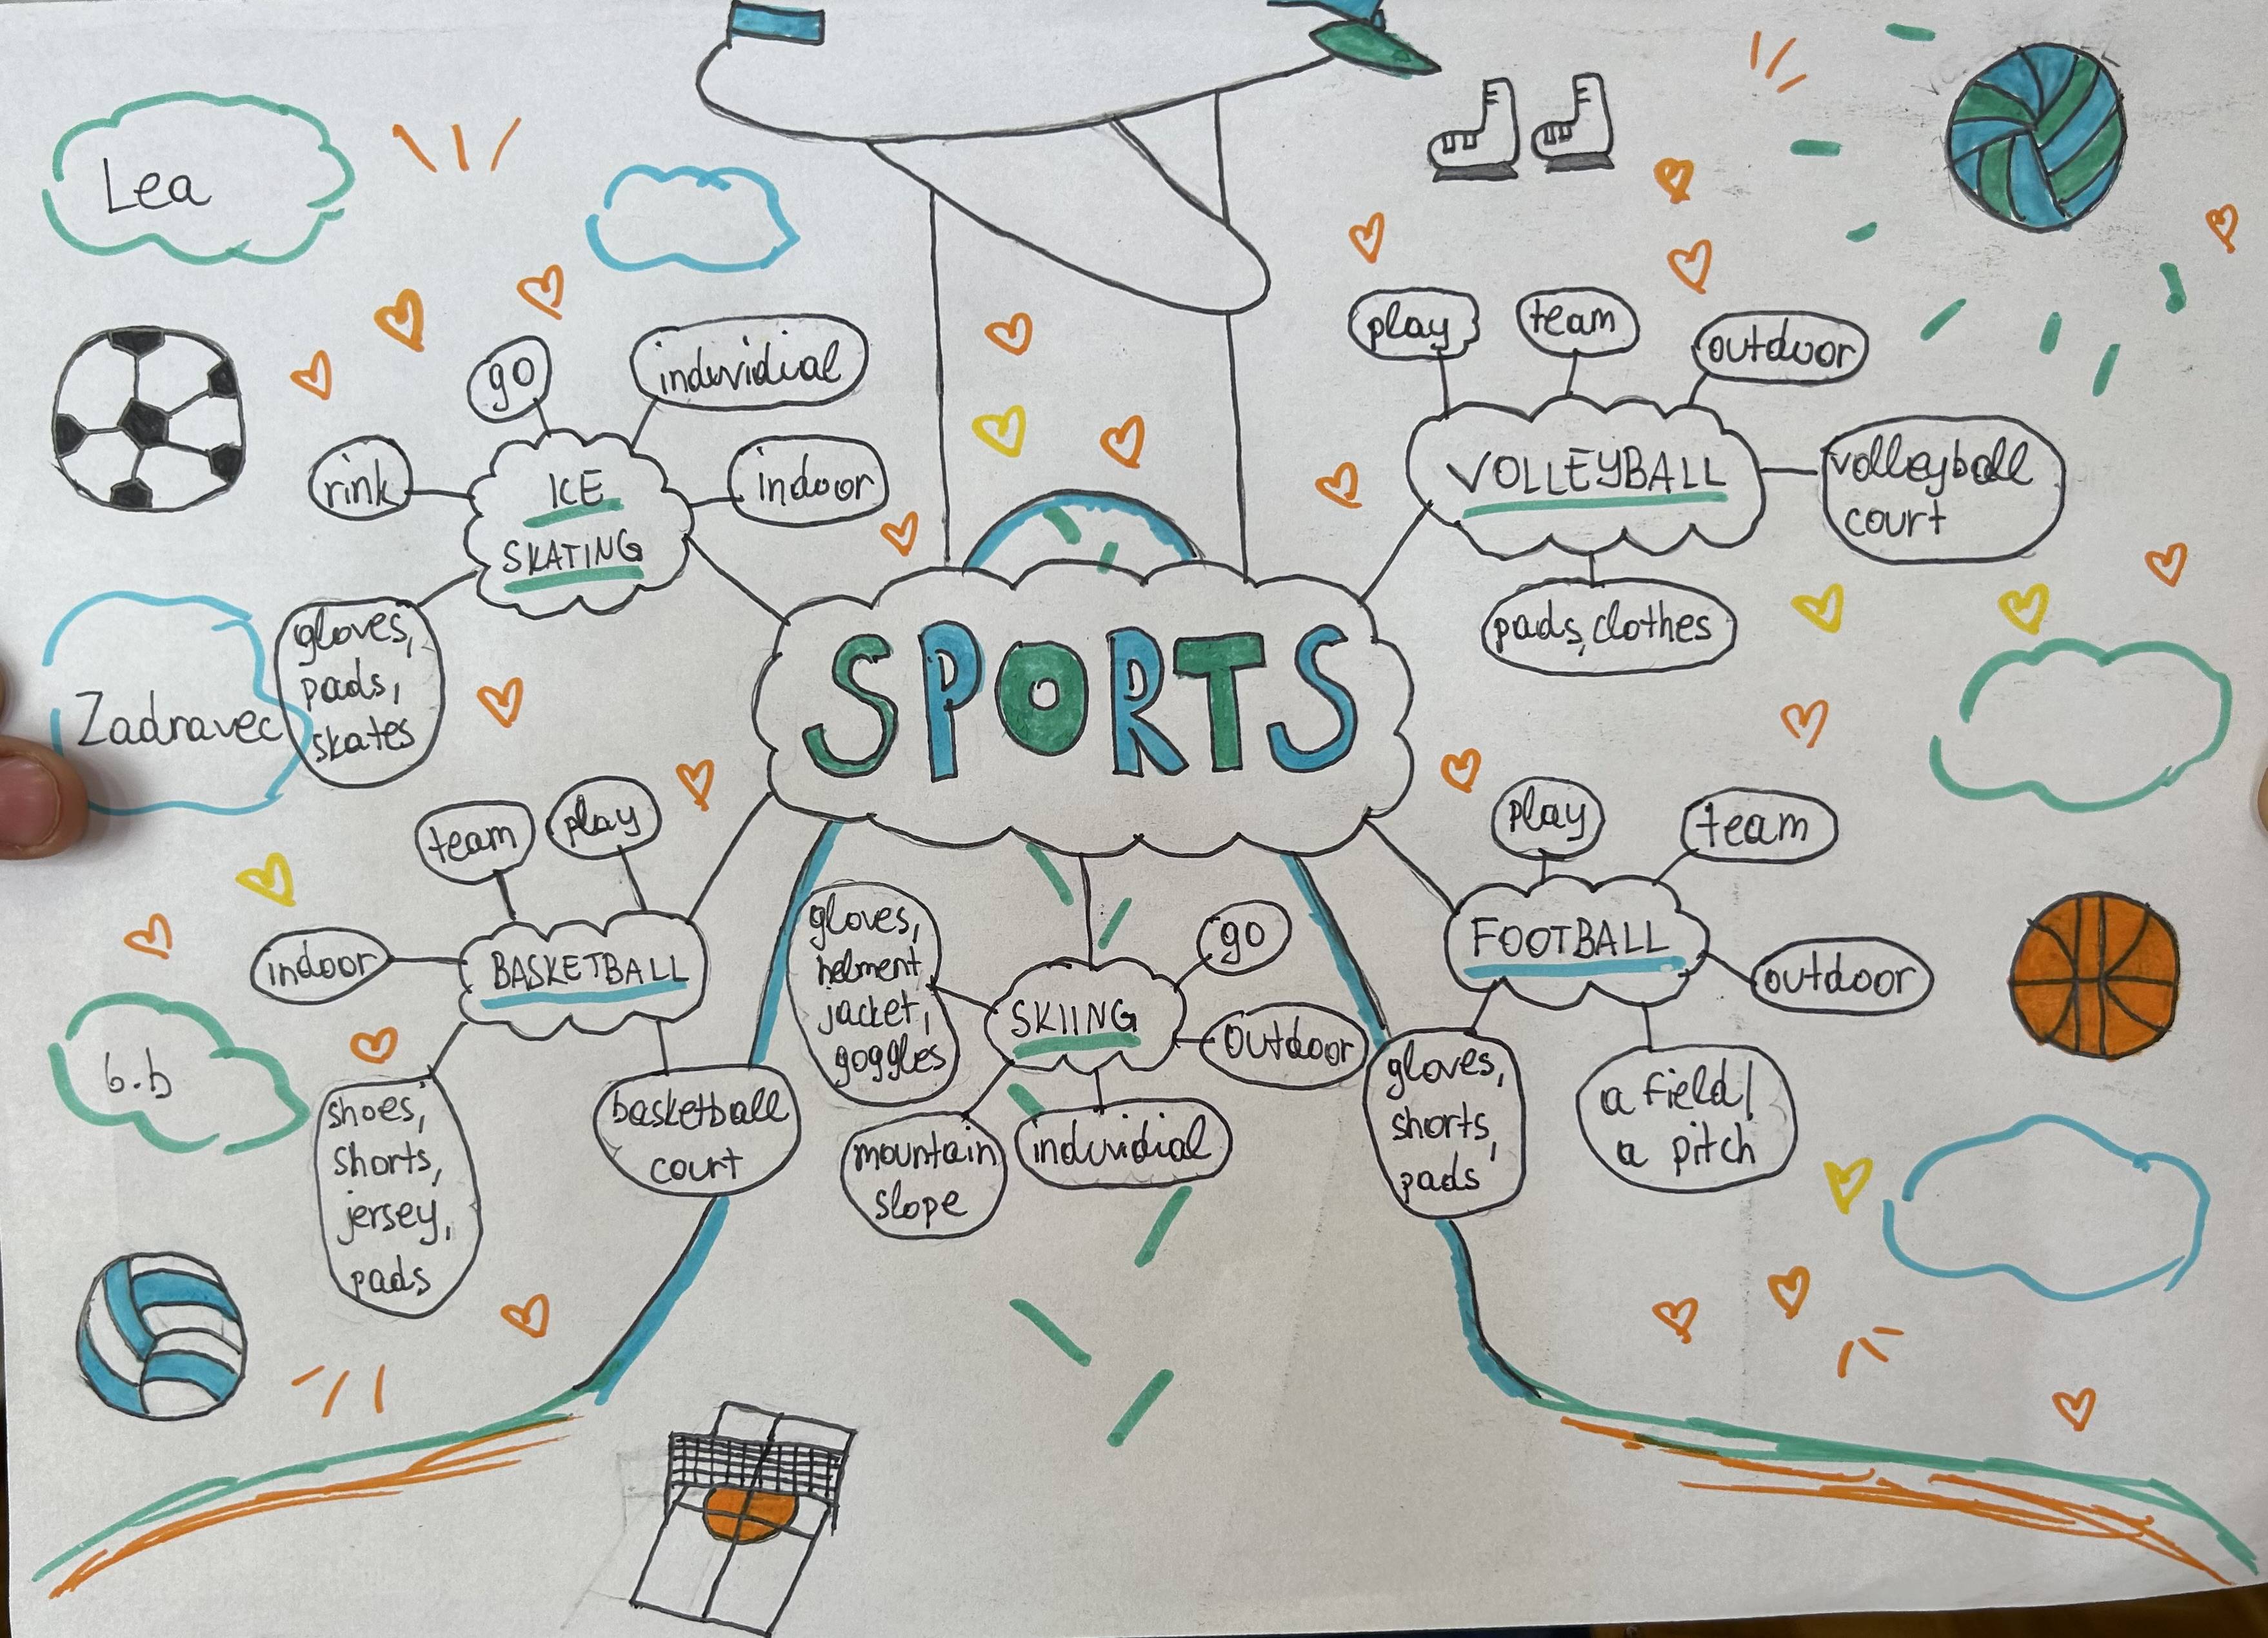 Lea
Zadravec
6.b
SPORTS
ICE
SKATING
go
individial
indoor
rink
gloves,
pads,
skates
VOLLEYBALL
play
team
outdoor
volleyball
court
pads, clothes
BASKETBALL
team
play
indoor
shoes,
shorts,
jersey,
pads
basketball
court
SKIING
gloves,
helment
jacket,
goggles
go
outdoor
mountain
slope
individial
FOOTBALL
play
team
outdoor
gloves,
shorts,
pads
a field/
a pitch